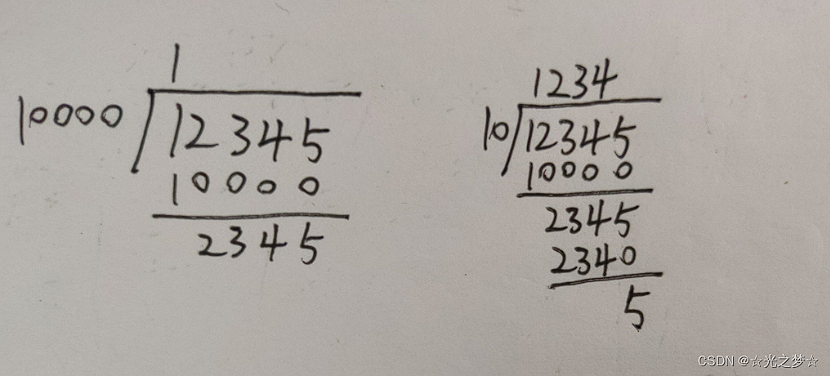 1
10000 12345
10000
2345
1234
10 12345
10000
2345
2340
5
CSDN @☆光之梦☆